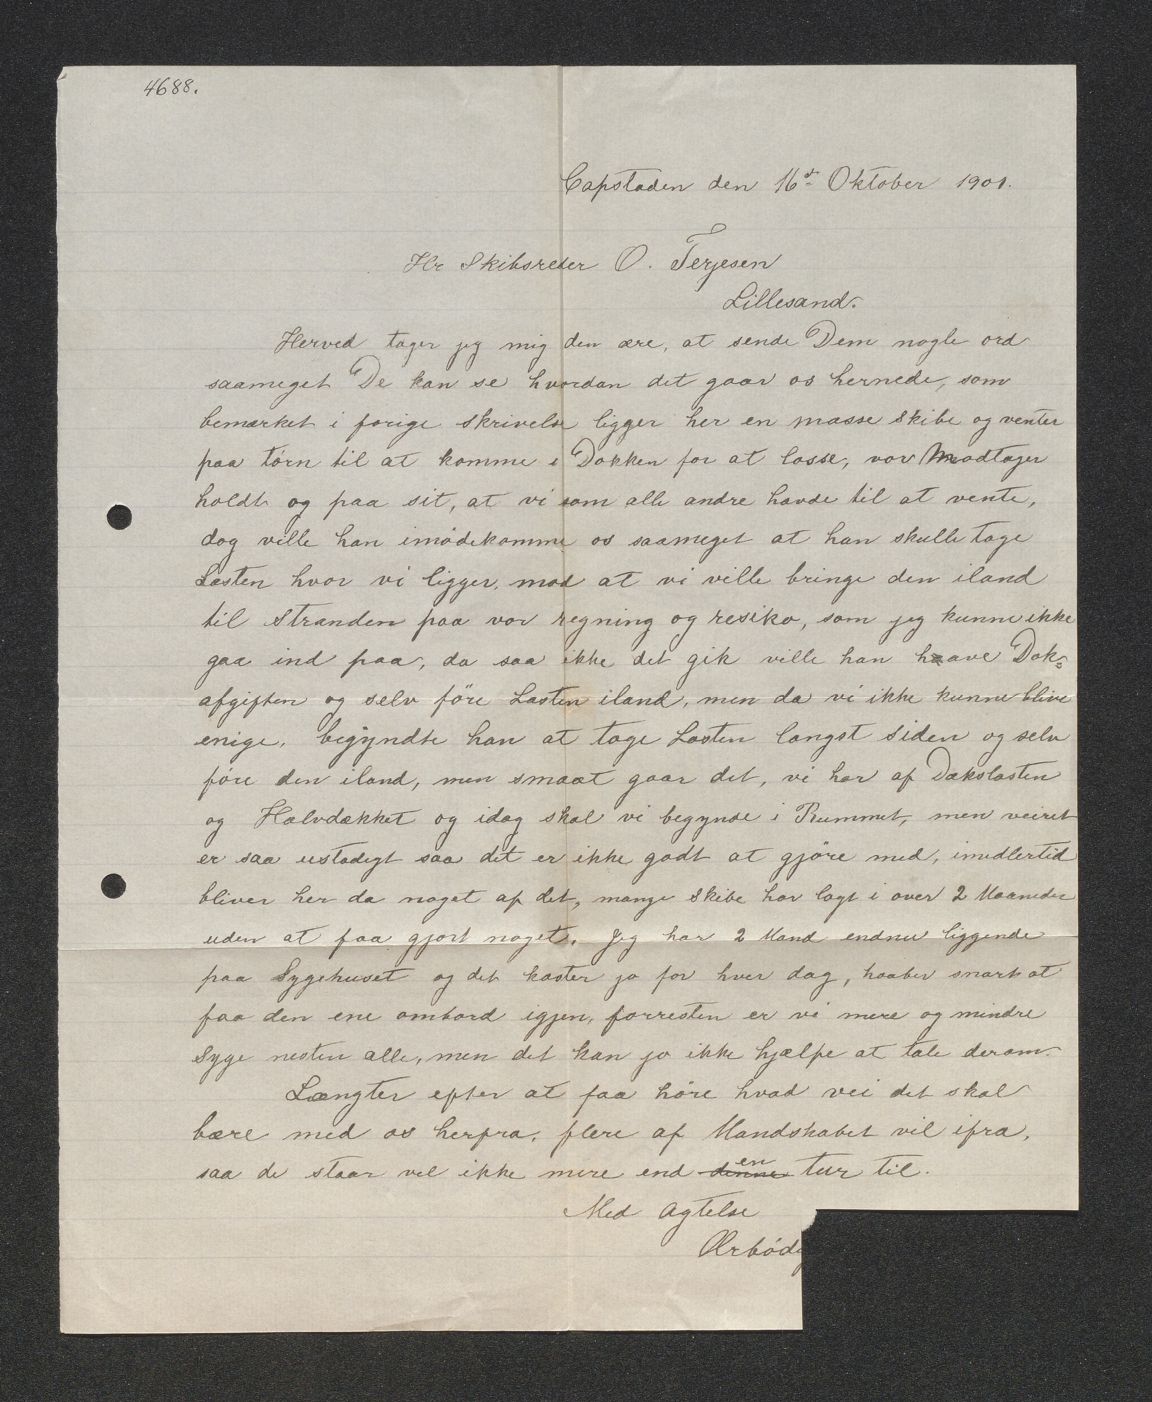 4688.
Capstaden den 16d Oktober 1901.
Hr Skibsreder O. Terjesen
Lillesand.
Herved tager jeg mig den ære, at sende Dem nogle ord
saameget De kan se hvordan det gaar os hernede, som
bemærket i forige skrivelse ligger her en masse skibe og venter
paa törn til at komme i Dokken for at losse, vor Modtager
holdt og paa sit, at vi som alle andre havde til at vente,
dog ville han imödekomme os saameget at han skulle tage
Lasten hvor vi ligger, mod at vi ville bringe den iland
til Stranden paa vor regning og resiko, som jeg kunne ikke
gaa ind paa, da saa ikke det gik ville han have Dok-
afgiften og selv före Lasten iland, men da vi ikke kunne blive
enige, begyndte han at tage Lasten langst siden og selv
före den iland, men smaat gaar det, vi har af Dækslasten
og Halvdækket og idag skal vi begynde i Rummet, men veiret
er saa ustadigt saa det er ikke godt at gjöre med, imidlertid
bliver her da noget af det, mange skibe har lagt i over 2 Maaneder
uden at faa gjort noget. Jeg har 2 Mand endnu liggende
paa Sygehuset og det koster jo for hver dag, haaber snart at
faa den ene ombord igjen, forresten er vi mere og mindre
Syge nesten alle, men det kan jo ikke hjælpe at tale derom.
Længter efter at faa höre hvad vei det skal
bære med os herfra, flere af Mandskabet vil ifra,
saa de staar vel ikke mere end denne en tur til.
Med Agtelse
Ærbödig